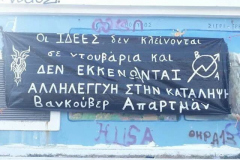 Οι ΙΔΕΕΣ δεν κλείνονται
σε ντουβάρια και
ΔΕΝ ΕΚΚΕΝΩΝΤΑΙ
ΑΛΛΗΛΕΓΓΥΗ ΣΤΗΝ ΚΑΤΑΛΗΨΗ
Βανκούβερ Απαρτμάν